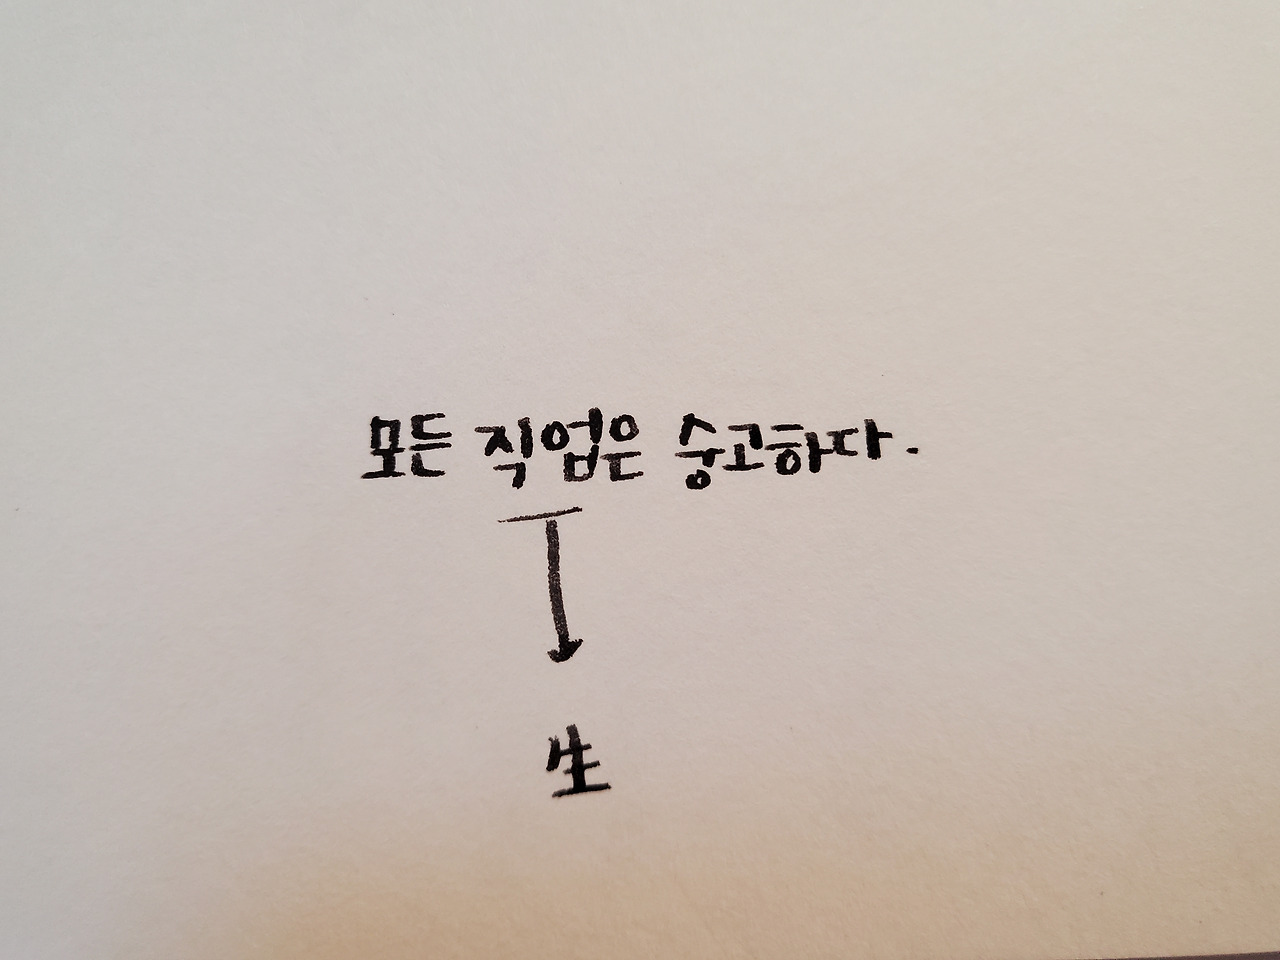 모든 직업은 숭고하다.
生